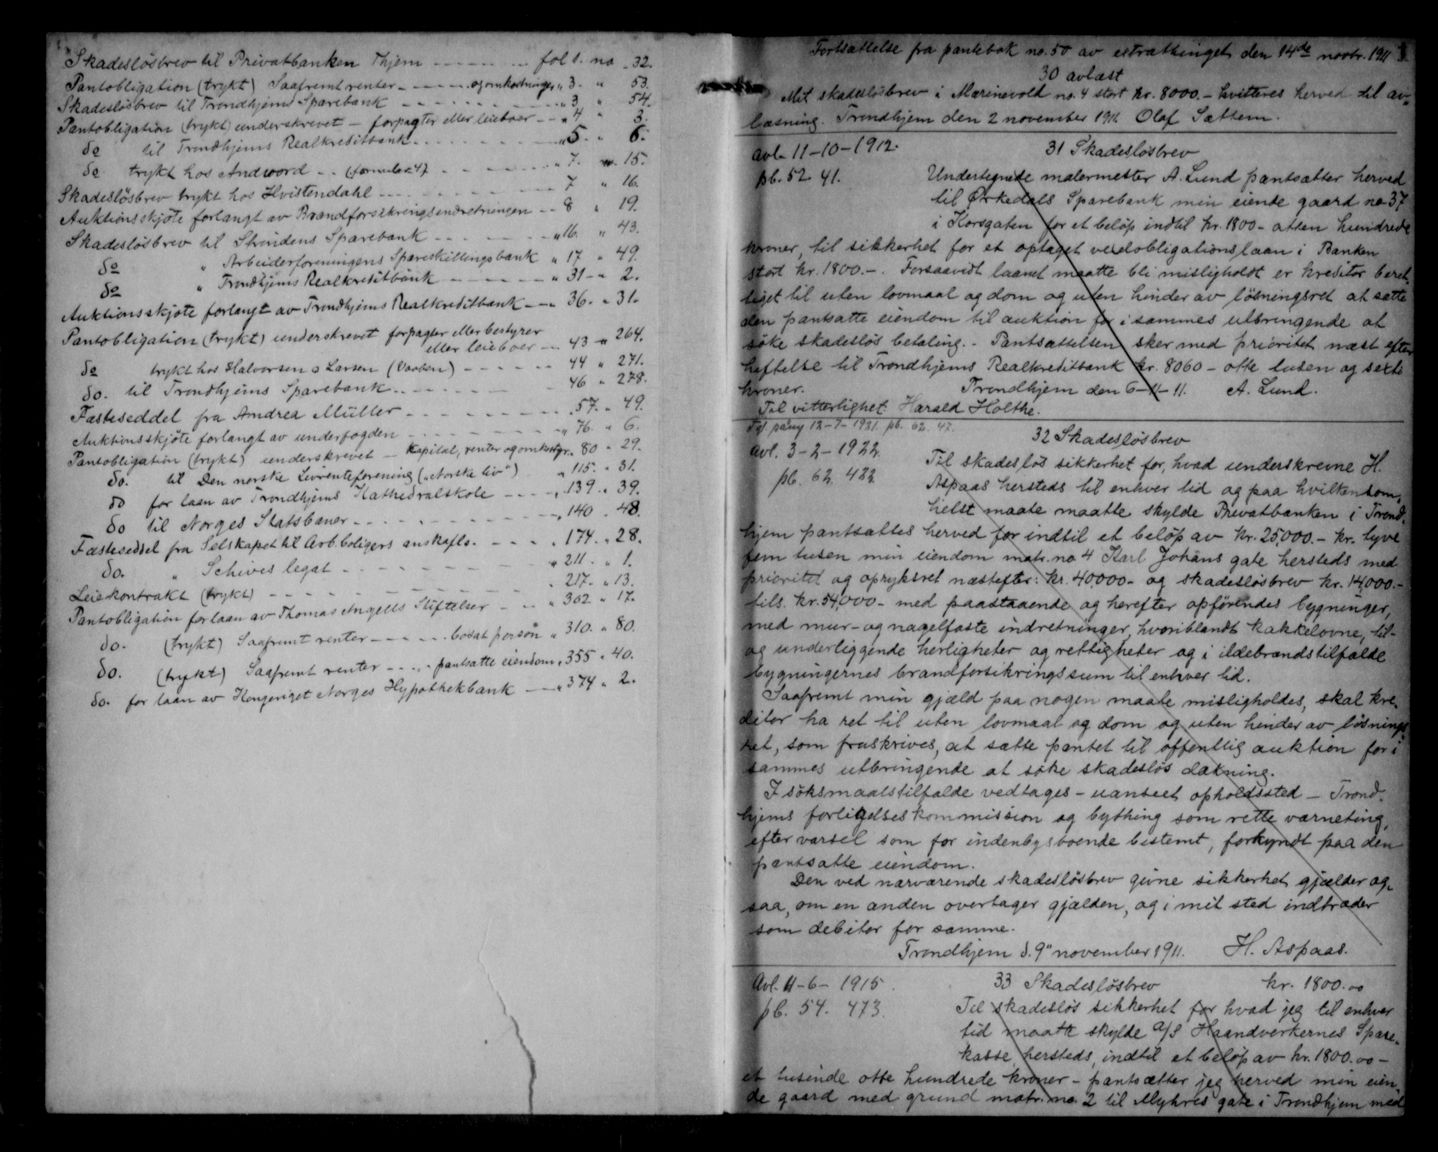 Skadesløsbrev til Privatbanken Thjem — — — fol 1. no 32.
Pantobligation (trykt) Saafremt renter — — — og omkostninger „ 3. „ 53.
Skadesløsbrev til Trondhjems Sparebank — — — „ 3 „ 54.
Pantobligation (trykt) underskrevet — forpagter eller leieboer — „ 4 „ 3.
do til Trondhjems Realkreditbank — — — „ 5 „ 6.
do trykt hos Andword — — (formular 47) — — — „ 7. „ 15.
Skadesløsbrev trykt hos Hvistendahl — — — 7 „ 16.
Auktionsskjøte forlangt av Brandforsikringsindretningen — — 8 „ 19.
Skadesløsbrev til Strindens Sparebank — — — „ 16. „ 43.
do „ Arbeiderforeningens Spareskillingsbank „ 17 „ 49.
do „ Trondhjems Realkreditbank — — — „ 31 — „ 2.
Auktionsskjøte forlangt av Trondhjems Realkreditbank — „ 36. „ 31.
Pantobligation (trykt) underskrevet forpagter eller bestyrer
eller leieboer — 43 „ 264.
do trykt hos Halvorsen & Larsen (Vaaken) — — — 44 „ 271.
do. til Trondhjems Sparebank — — — 46 „ 278.
Fæsteseddel fra Andrea Müller — — — „ 57. „ 49.
Auktionsskjøte forlangt av underfogden — — — „ 76. „ 6.
Pantobligation (trykt) underskrevet — Kapital, renter og omkostgr. „ 80 „ 29.
do. til Den norske Livrenteforening („Norske liv") „ 115. „ 31.
do for laan av Trondhjems Kathedralskole — — — „ 139. „ 39.
do til Norges Statsbaner — — — „ 140 „ 48.
Fæsteseddel fra Selskapet til Arb.boligers anskaffls. — — — „ 174. „ 28.
do. „ Schives legat — — — „ 211 „ 1.
Leiekontrakt (trykt) — — — „ 217. „ 13.
Pantobligation for laan av Thomas Angells Stiftelser — — „ 302 „ 17.
do. (trykt) Saafremt renter — — — bosat person „ 310. „ 80.
do. (trykt) Saafremt renter — — — pantsatte eiendom „ 355 „ 40.
do. for laan av Kongeriget Norges Hypothekbank — — „ 374 „ 2.
Fortsættelse fra pantebok no. 50 av extrathinget den 14de novbr. 1911
30 avlæst
Mit skadesløsbrev i Marinevold no. 4 stort kr. 8000.- kvitteres herved til av-
læsning. Trondhjem den 2 november 1911. Olaf Sættem.
avl. 11-10-1912.
31 Skadesløsbrev
pb. 52 41.
Undertegnede malermester A. Lund pantsætter herved
til Ørkedals Sparebank min eiende gaard no. 37
i Korsgaten for et beløp indtil kr. 1800 - atten hundrede
kroner, til sikkerhet for et optaget vexelobligationslaan i Banken
stort kr. 1800 -. Forsaavidt laanet maatte bli misligholdt er kreditor beret-
tiget til uten lovmaal og dom og uten hinder av løsningsret at sætte
den pantsatte eiendom til auktion for i sammes utbringende at
søke skadesløs betaling. - Pantsættelsen sker med prioritet næst efter
heftelse til Trondhjems Realkreditbank kr. 8060 - otte tusen og sexti
kroner.
Trondhjem den 6-11-11. A. Lund.
Til vitterlighet Harald Holthe.
Tgl paany 12-7-1921. pb. 62. 42.
32 Skadesløsbrev
avl. 3-2-1922.
pb. 62. 422.
Til skadesløs sikkerhet for, hvad underskrevne H.
Aspaas hersteds til enhver tid og paa hvilkensom-
helst maate maatte skylde Privatbanken i Trond-
hjem pantsættes herved for indtil et beløp av kr. 25,000.- kr. tyve
fem tusen min eiendom matr. no 4 Karl Johans gate hersteds med
prioritet og opryksret næstefter: kr. 40000 - og skadesløsbrev kr. 14,000.-
tils. kr. 54,000 - med paastaaende og herefter opførendes bygninger,
med mur- og nagelfaste indretninger, hvoriblandt kakkelovne, til-
og underliggende herligheter og rettigheter og i ildebrandstilfælde
bygningernes brandforsikringssum til enhver tid.
Saafremt min gjæld paa nogen maate misligholdes, skal kre-
ditor ha ret til uten lovmaal og dom og uten hinder av løsnings-
ret, som fraskrives, at sætte pantet til offentlig auktion for i
sammes utbringende at søke skadesløs dækning.
I søksmaalstilfælde vedtages - uanseet opholdssted - Trond-
hjems forligelseskommission og bything som rette værneting,
efter varsel som for indenbysboende bestemt, forkyndt paa den
pantsatte eiendom.
Den ved nærværende skadesløsbrev givne sikkerhet gjælder og-
saa, om en anden overtager gjælden, og i mit sted indtræder
som debitor for samme.
Trondhjem d. 9" november 1911. H. Aspaas.
Avl. 11-6-1915.
33 Skadesløsbrev kr. 1800.00
pb. 54. 473.
Til skadesløs sikkerhet for hvad jeg til enhver
tid maatte skylde A/S Haandverkernes Spare-
kasse, hersteds, indtil et beløp av kr. 1800.00 -
et tusinde otte hundrede kroner - pantsætter jeg herved min eien-
de gaard med grund matr. no. 2 til Myhres gate i Trondhjem med